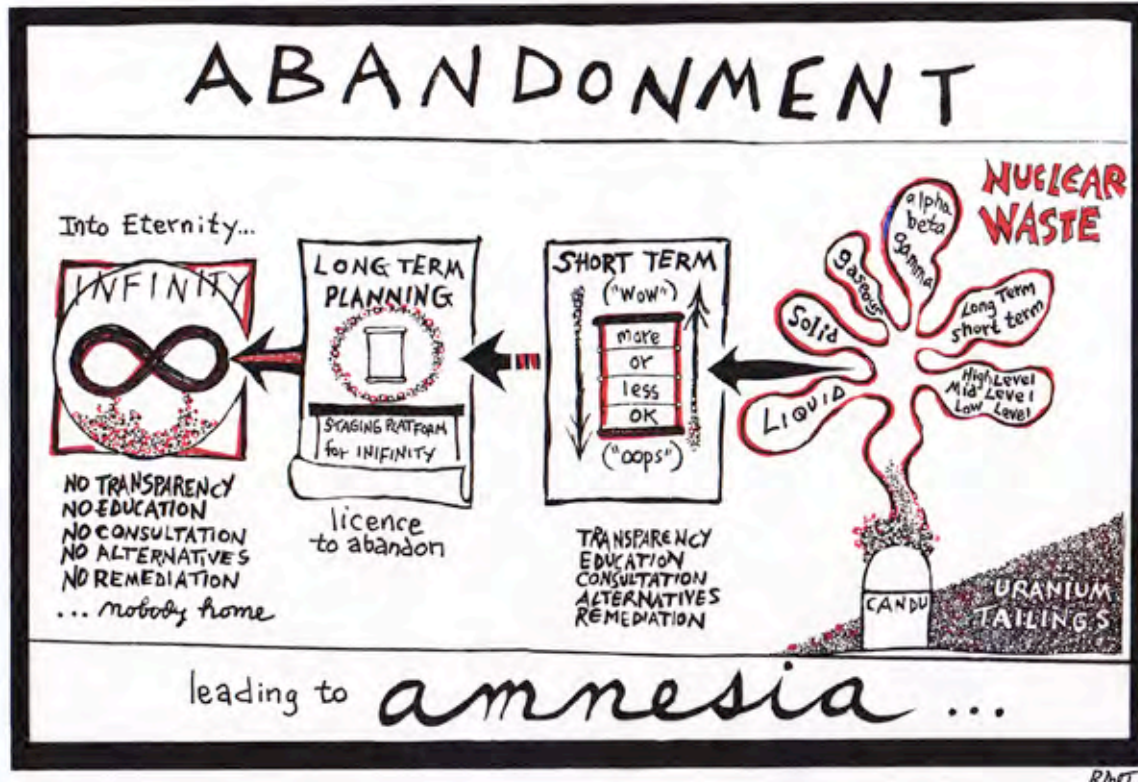 ABANDONMENT
Into Eternity...
INFINITY
NO TRANSPARENCY
NO EDUCATION
NO CONSULTATION
NO ALTERNATIVES
NO REMEDIATION
... nobody home
LONG TERM
PLANNING
STAGING PLATFORM
for INIFINITY
licence
to abandon
SHORT TERM
("WOW")
more
or
less
OK
("OOPS")
TRANSPARENCY
EDUCATION
CONSULTATION
ALTERNATIVES
REMEDIATION
NUCLEAR
WASTE
alpha
beta
gamma
gaseous
Solid
LIQUID
Long Term
short term
High Level
Mid Level
Low Level
CANDU
URANIUM
TAILINGS
leading to amnesia ...